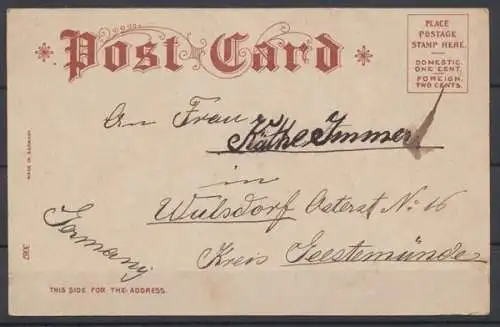 Post Card
PLACE
POSTAGE
STAMP HERE.
DOMESTIC.
ONE CENT.
FOREIGN.
TWO CENTS.
An Frau
Käthe Immer
in
Wulsdorf Osterst No 16
Kreis Geestemünde
Germany
MADE IN GERMANY
THIS SIDE FOR THE ADDRESS.